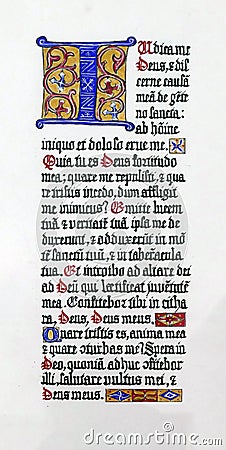 Iudica me
Deus, & dis
cerne causā
meā de gēte
no sancta:
ab hoīne
iniquo et doloso erue me.
Quia tu es Deus fortitudo
mea; quare me repulisti, & qua
re tristis incedo, dum affligit
me inimicus? Emitte lucem
tuā & veritatē tuā ipsa me de
duxerunt, & adduxerūt in mō
tē sanctū tuū, & in tabernacula
tua. Et introibo ad altare dei
ad Deū qui laetificat juventutē
mea. Confitebor tibi in citha
ra, Deus, Deus meus.
Quare tristis es, anima mea
& quare cōturbas me? Spera in
Deo, quoniā adhuc cōfitebor
illi, salutare vultus mei, &
Deus meus.
dreamstime.com